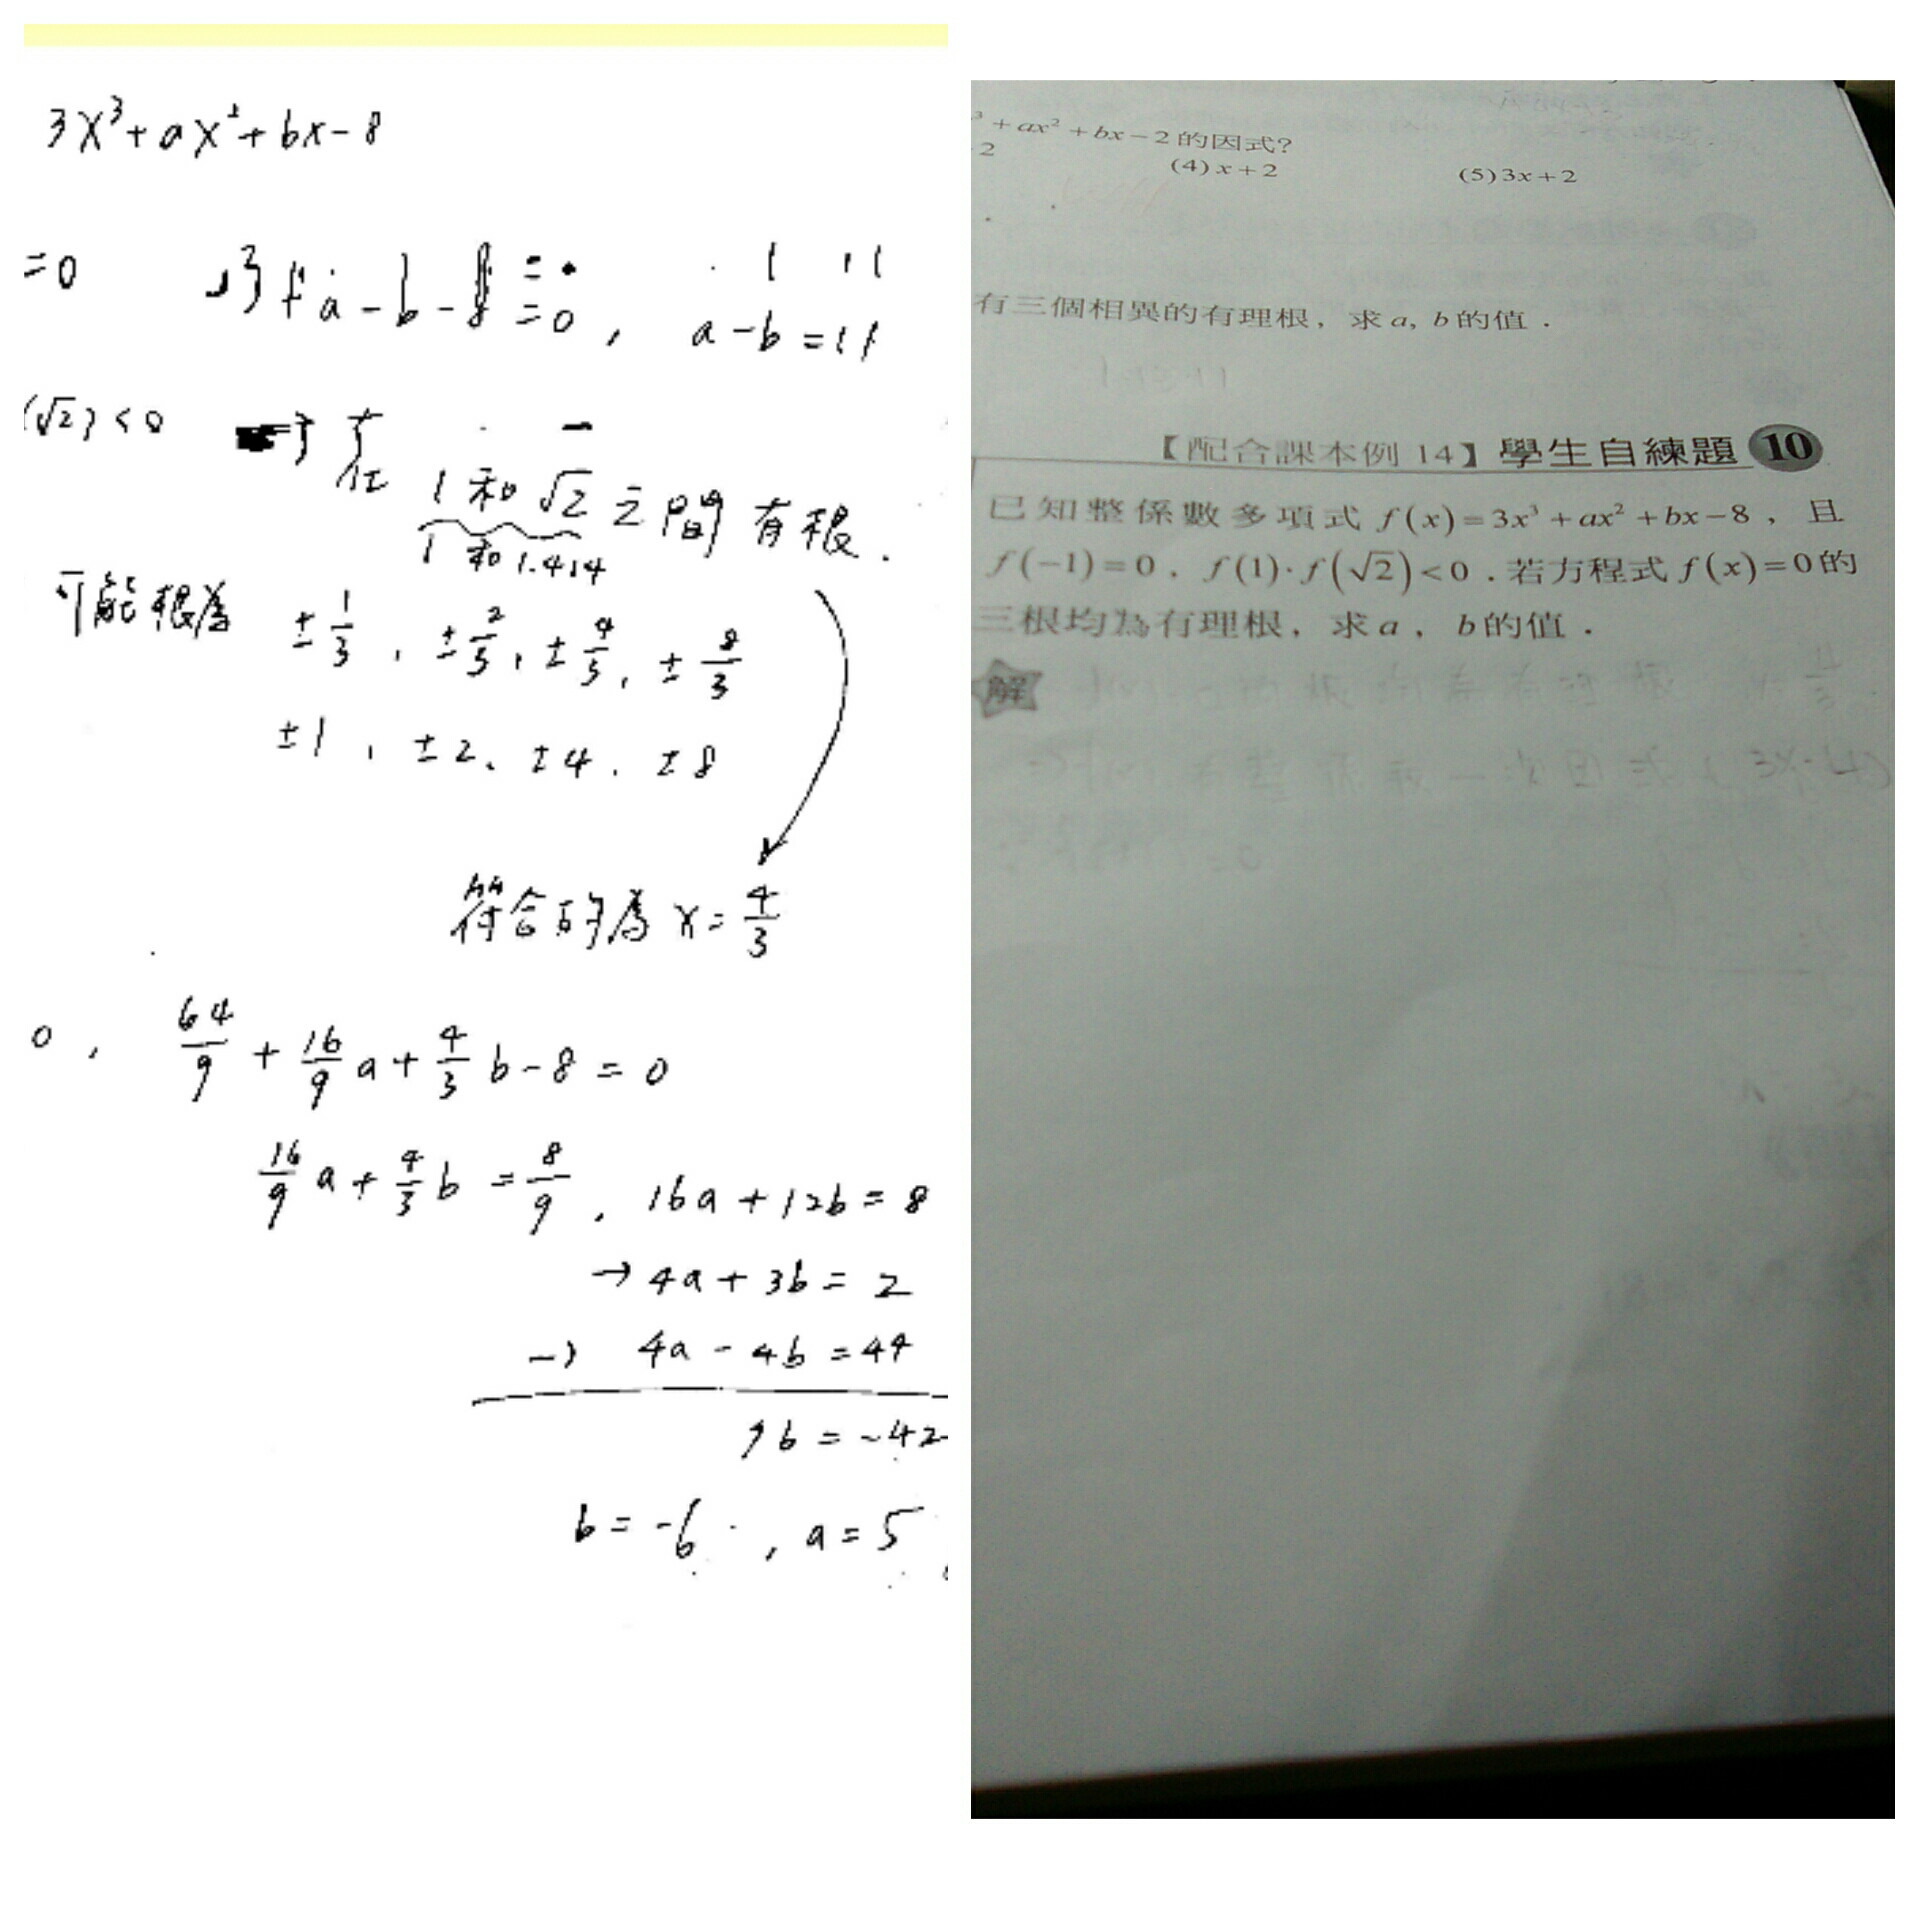 3x³+ax²+bx-8
=0 -3+a-b-8=0, a-b=11
(√2)<0 → 在 1和√2之間有根.
1和1.414
可能根為 ±1/3, ±2/3, ±4/3, ±8/3
±1, ±2、±4、±8
符合的為 x=4/3
0, 64/9+16/9a+4/3b-8=0
16/9a+4/3b=8/9, 16a+12b=8
→4a+3b=2
-) 4a-4b=44
7b=-42
b=-6, a=5
³+ax²+bx-2的因式?
2 (4)x+2 (5)3x+2
有三個相異的有理根,求a, b的值.
【配合課本例14】學生自練題 10
已知整係數多項式f(x)=3x³+ax²+bx-8,且
f(-1)=0.f(1)·f(√2)<0.若方程式f(x)=0的
三根均為有理根,求a,b的值.
解